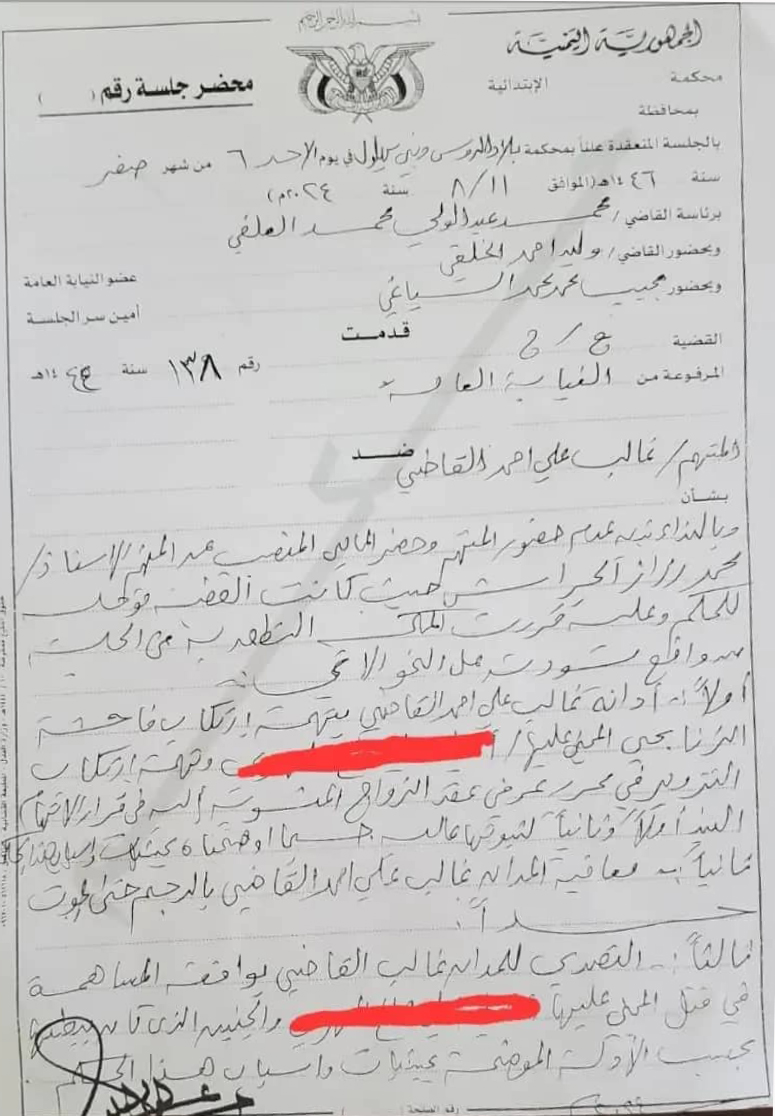 بسم الله الرحمن الرحيم
الجمهورية اليمنية
محكمة الإبتدائية
محضر جلسة رقم ( )
بمحافظة
بالجلسة المنعقدة علناً بمحكمة بلاد الروس وبني بهلول في يوم الاحد ٦ من شهر صفر
سنة ١٤٤٦هـ (الموافق ٨/١١ سنة ٢٠٢٤م)
برئاسة القاضي/ محمد عبدالولي محمد العلفي
وبحضور القاضي/ وليد احمد الخلقي عضو النيابة العامة
وبحضور مجيب محمد محمد السياغي أمين سر الجلسة
القضية ج/ج قدمت رقم ١٣٨ سنة ١٤هـ
المرفوعة من النيابة العامة
ضد
المتهم/ غالب علي احمد القاضي
بشأن
وبالنداء تبين عدم حضور المتهم وحضر المحامي المنصب عن المتهم/ الاستاذ/
محمد الحراسي حيث كانت القضية مؤجلة
للحكم وعليه قررت المحكمة النطق به من الجلسة
من واقع مسودته على النحو الآتي
أولاً :- أدانة غالب علي احمد القاضي بتهمة ارتكاب فاحشة
الزنا بحق المجني عليها/ وتهمة ارتكاب
التزوير في محرر عرفي عقد الزواج المنسوبة إليه في قرار الاتهام
البند أولاً وثانياً لثبوتها عليه حسبما اوضحناه بحيثيات واسباب هذا
ثانياً :- معاقبة المدان غالب علي احمد القاضي بالرجم حتى الموت
حداً.
ثالثاً :- التصدي للمدان غالب القاضي بواقعة المساهمة
في قتل المجني عليها والجنين الذي كان ببطنها
بحسب الأدلة الموضحة بحيثيات واسباب هذا الحكم.
رقم الصفحة